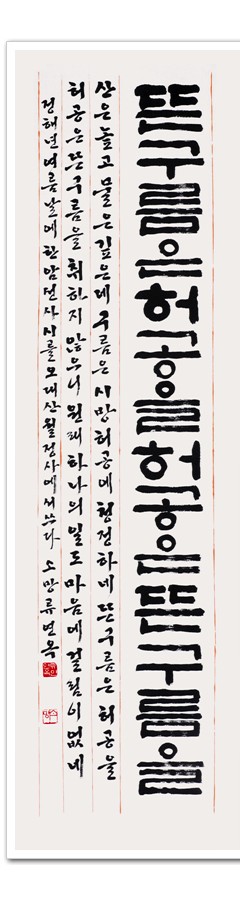 뜬구름은허공을허공은뜬구름을
산은높고물은깊은데구름은시방허공에청정하네뜬구름은허공을
허공은뜬구름을취하지않으니원래하나의일도마음에걸림이없네
정해년여름날에한암선사시를오대산월정사에서쓰다 소망류연옥